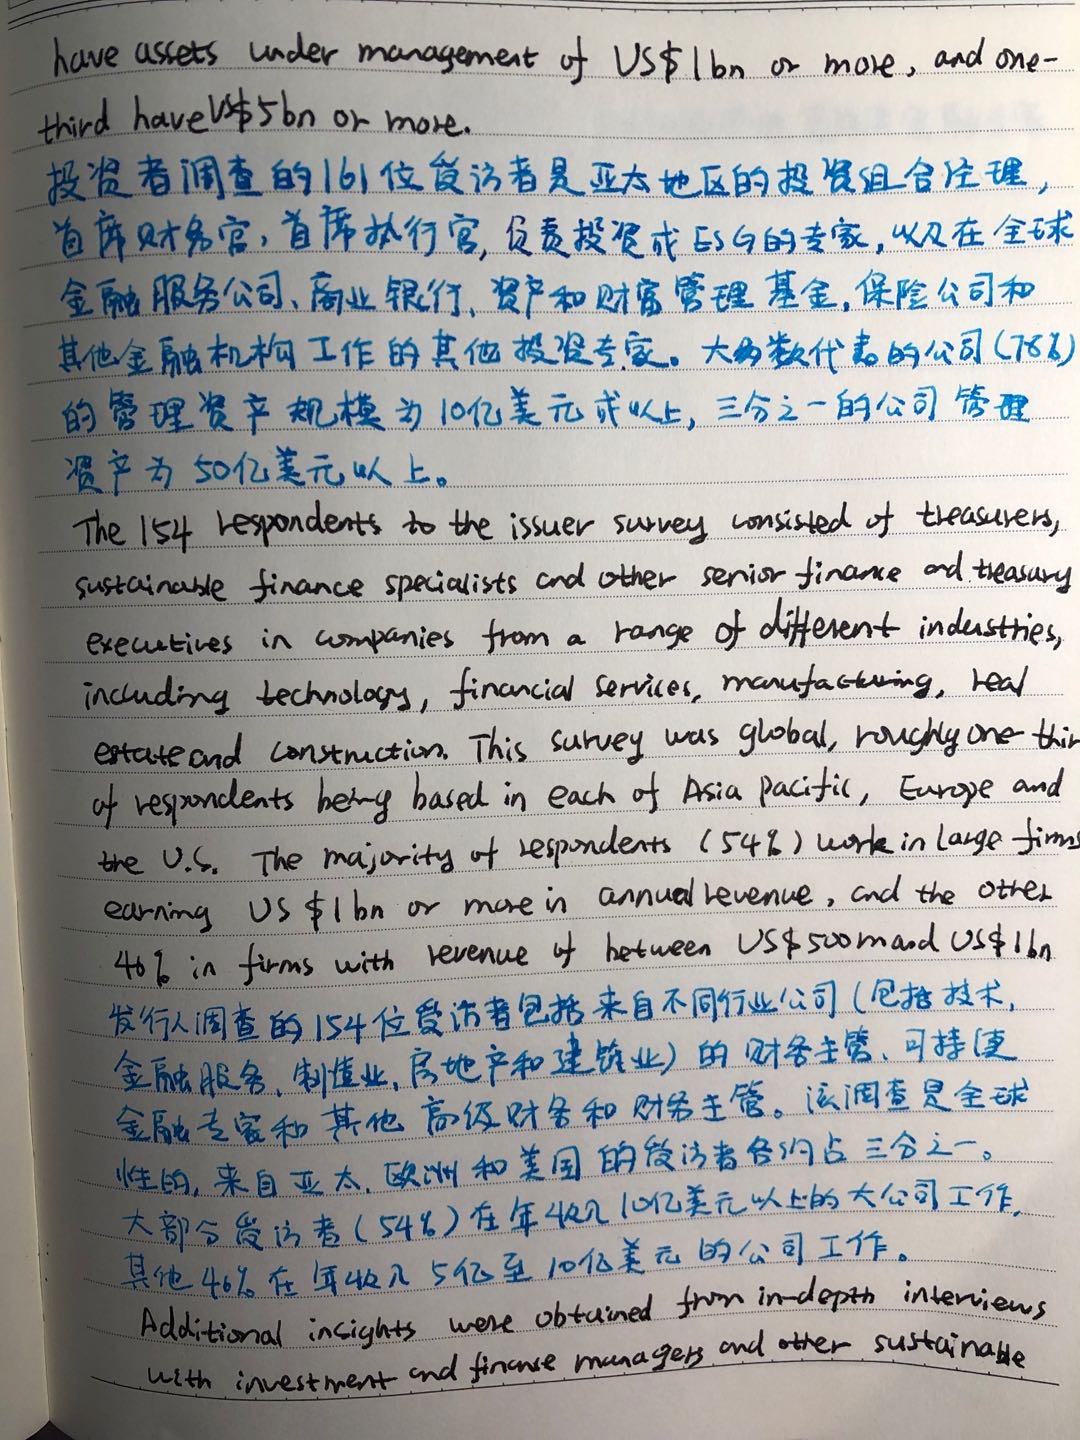 have assets under management of US$1bn or more, and one-
third have US$5bn or more.
投资者调查的161位受访者是亚太地区的投资组合经理,
首席财务官,首席执行官,负责投资或ESG的专家,以及在全球
金融服务公司、商业银行、资产和财富管理基金,保险公司和
其他金融机构工作的其他投资专家。大多数代表的公司(78%)
的管理资产规模为10亿美元或以上,三分之一的公司管理
资产为50亿美元以上。
The 154 respondents to the issuer survey consisted of treasurers,
sustainable finance specialists and other senior finance and treasury
executives in companies from a range of different industries,
including technology, financial services, manufacturing, real
estate and construction. This survey was global, roughly one-thir
of respondents being based in each of Asia pacific, Europe and
the U.S. The majority of respondents (54%) work in large firms
earning US$1bn or more in annual revenue, and the other
46% in firms with revenue of between US$500m and US$1bn
发行人调查的154位受访者包括来自不同行业公司(包括技术,
金融服务,制造业,房地产和建筑业)的财务主管、可持续
金融专家和其他高级财务和财务主管。该调查是全球
性的,来自亚太,欧洲和美国的受访者各约占三分之一。
大部分受访者(54%)在年收入10亿美元以上的大公司工作,
其他46%在年收入5亿至10亿美元的公司工作。
Additional insights were obtained from in-depth interviews
with investment and finance managers and other sustainable